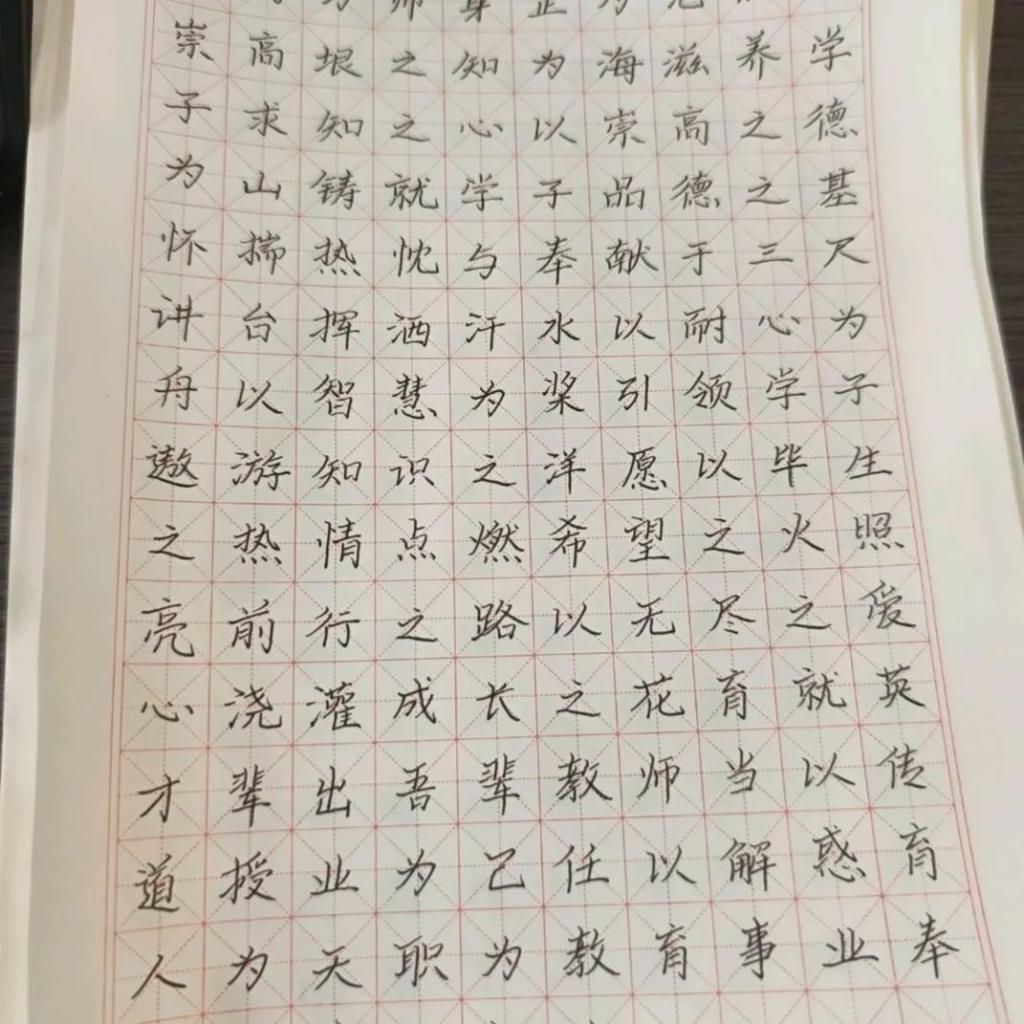 师身正为
崇高垠之知为海滋养学
子求知之心以崇高之德
为山铸就学子品德之基
怀揣热忱与奉献于三尺
讲台挥洒汗水以耐心为
舟以智慧为桨引领学子
遨游知识之洋愿以毕生
之热情点燃希望之火照
亮前行之路以无尽之爱
心浇灌成长之花育就英
才辈出吾辈教师当以传
道授业为己任以解惑育
人为天职为教育事业奉